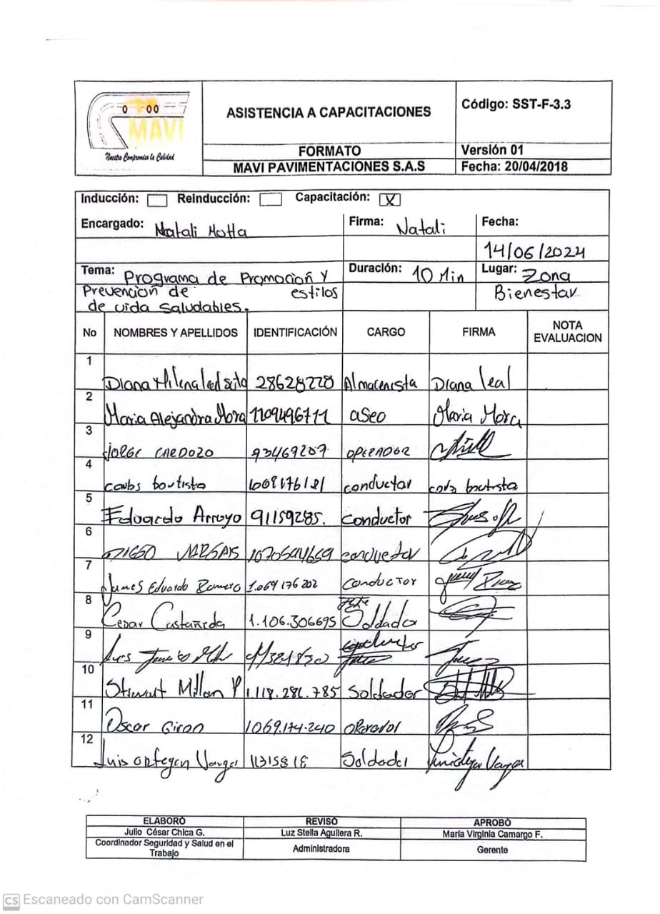 MAVI
Nuestro Compromiso la Calidad
ASISTENCIA A CAPACITACIONES
Código: SST-F-3.3
FORMATO
Versión 01
MAVI PAVIMENTACIONES S.A.S
Fecha: 20/04/2018
Inducción: Reinducción: Capacitación: X
Encargado: Natali Motta Firma: Natali Fecha:
14/06/2024
Tema: Programa de Promoción Y Duración: 10 Min Lugar: Zona
Prevención de estilos Bienestar
de vida saludables.
No NOMBRES Y APELLIDOS IDENTIFICACIÓN CARGO FIRMA NOTA EVALUACION
1 Diana Milena 28628220 Almacenista Diana Leal
2 Maria Alejandra Mora 1109496711 aseo Maria Mora
3 JORGE CARDOZO 93469207 OPERADOR
4 carlos bautista conductor bautista
5 Eduardo Arroyo 91159285. Conductor
6 1070591669 conductor
7 James Eduardo Romero 1.069176202 Conductor
8 Cesar Castañeda 1.106.306695 Soldador
9
10 Stewart Millan P 1.118.286.785 Soldador
11 Oscar Giron 1069.174.240 operador
12 Luis Vargas 11315816 Soldador
ELABORÓ REVISÓ APROBÓ
Julio César Chica G. Luz Stella Aguilera R. María Virginia Camargo F.
Coordinador Seguridad y Salud en el Trabajo Administradora Gerente
CS Escaneado con CamScanner